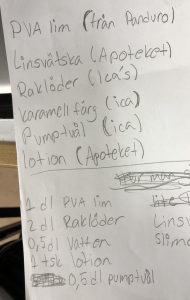 PVA lim (från Panduro)
Linsvätska (Apoteket)
Raklöder (Ica's)
karamell färg (ica)
Pumptvål (ica)
lotion (Apoteket)
1 dl PVA lim
2 dl Raklöder
Linsv
0,5 dl Vatten
Slime
1 tsk lotion
0,5 dl pumptvål